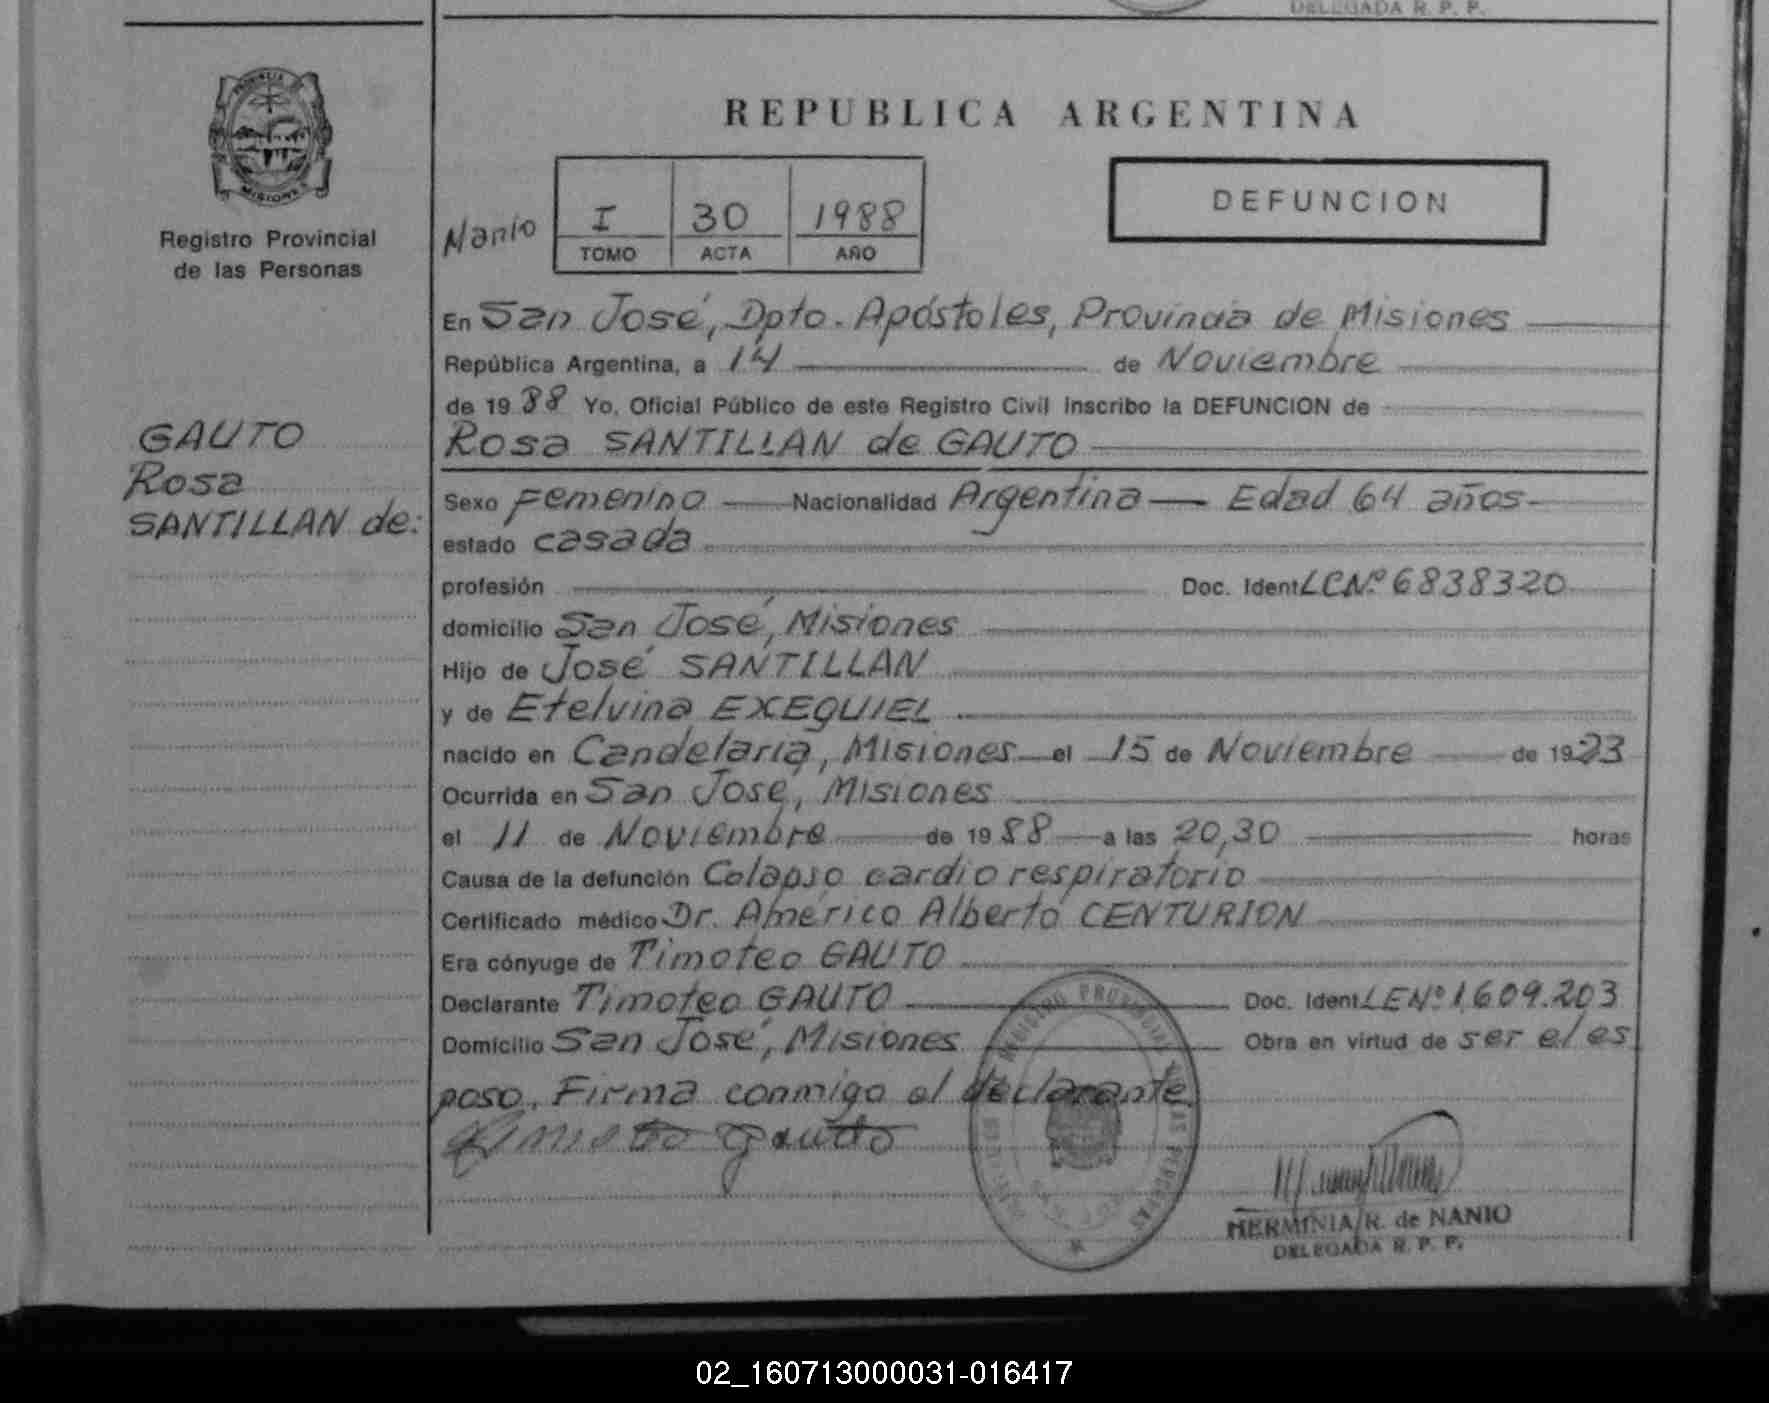 DELEGADA R. P. P.
PROVINCIA
MISIONES
Registro Provincial
de las Personas
GAUTO
Rosa
SANTILLAN de:
REPUBLICA ARGENTINA
Nanio
I 30 1988
TOMO ACTA AÑO
DEFUNCION
En San José, Dpto. Apóstoles, Provincia de Misiones
República Argentina, a 14 de Noviembre
de 1988 Yo, Oficial Público de este Registro Civil Inscribo la DEFUNCION de
Rosa SANTILLAN de GAUTO
Sexo femenino Nacionalidad Argentina Edad 64 años
estado casada
profesión Doc. Ident LCNº 6838320
domicilio San José, Misiones
Hijo de José SANTILLAN
y de Etelvina EXEQUIEL
nacido en Candelaria, Misiones el 15 de Noviembre de 1923
Ocurrida en San José, Misiones
el 11 de Noviembre de 1988 a las 20,30 horas
Causa de la defunción Colapso cardio respiratorio
Certificado médico Dr. Américo Alberto CENTURION
Era cónyuge de Timoteo GAUTO
Declarante Timoteo GAUTO Doc. Ident LENº 1.609.203
Domicilio San José, Misiones Obra en virtud de ser el es
poso. Firma conmigo el declarante.
Gauto
HERMINIA R. de NANIO
DELEGADA R. P. P.
02_160713000031-016417